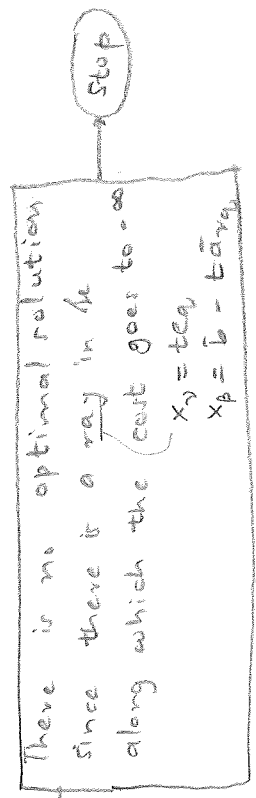 There is no optimal solution
since there is a ray in
along which the cost goes to -∞
x_ν = t e_q
x_β = b̄ - t ā_νq
Stop